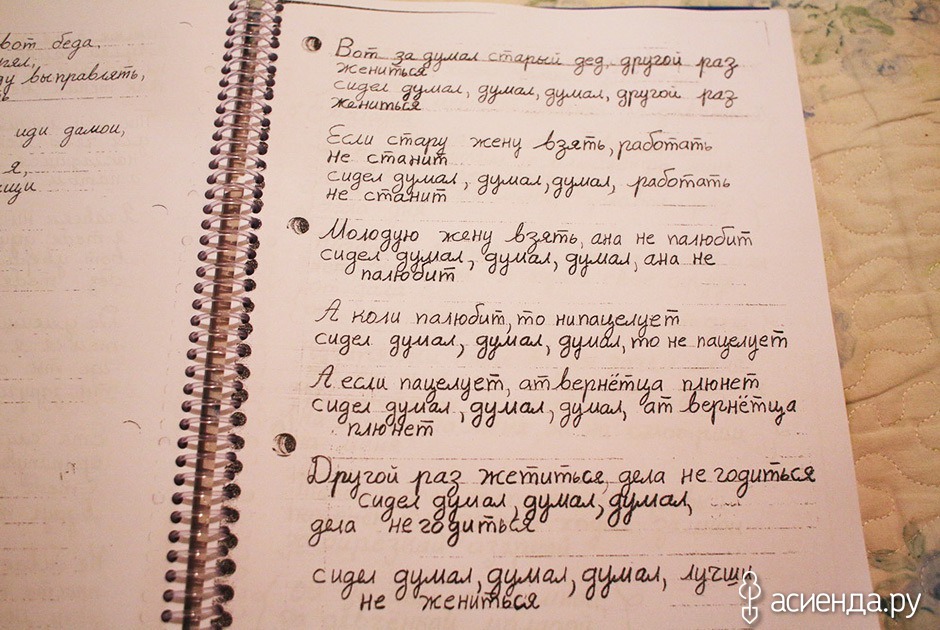 вот беда.
ду выправлять,
иди дамои,
я,
Вот за думал старый дед, другой раз
жениться
сидел думал, думал, думал, другой раз
жениться
Если стару жену взять, работать
не станит
сидел думал, думал, думал, работать
не станит
Молодую жену взять, ана не палюбит
сидел думал, думал, думал, ана не
палюбит
А коли палюбит, то нипацелует
сидел думал, думал, думал, то не пацелует
А если пацелует, атвернётца плюнет
сидел думал, думал, думал, ат вернётца
плюнет
Другой раз жетиться дела не годиться
сидел думал, думал, думал,
дела не годиться
сидел думал, думал, думал, лучши
не жениться
асиенда.ру